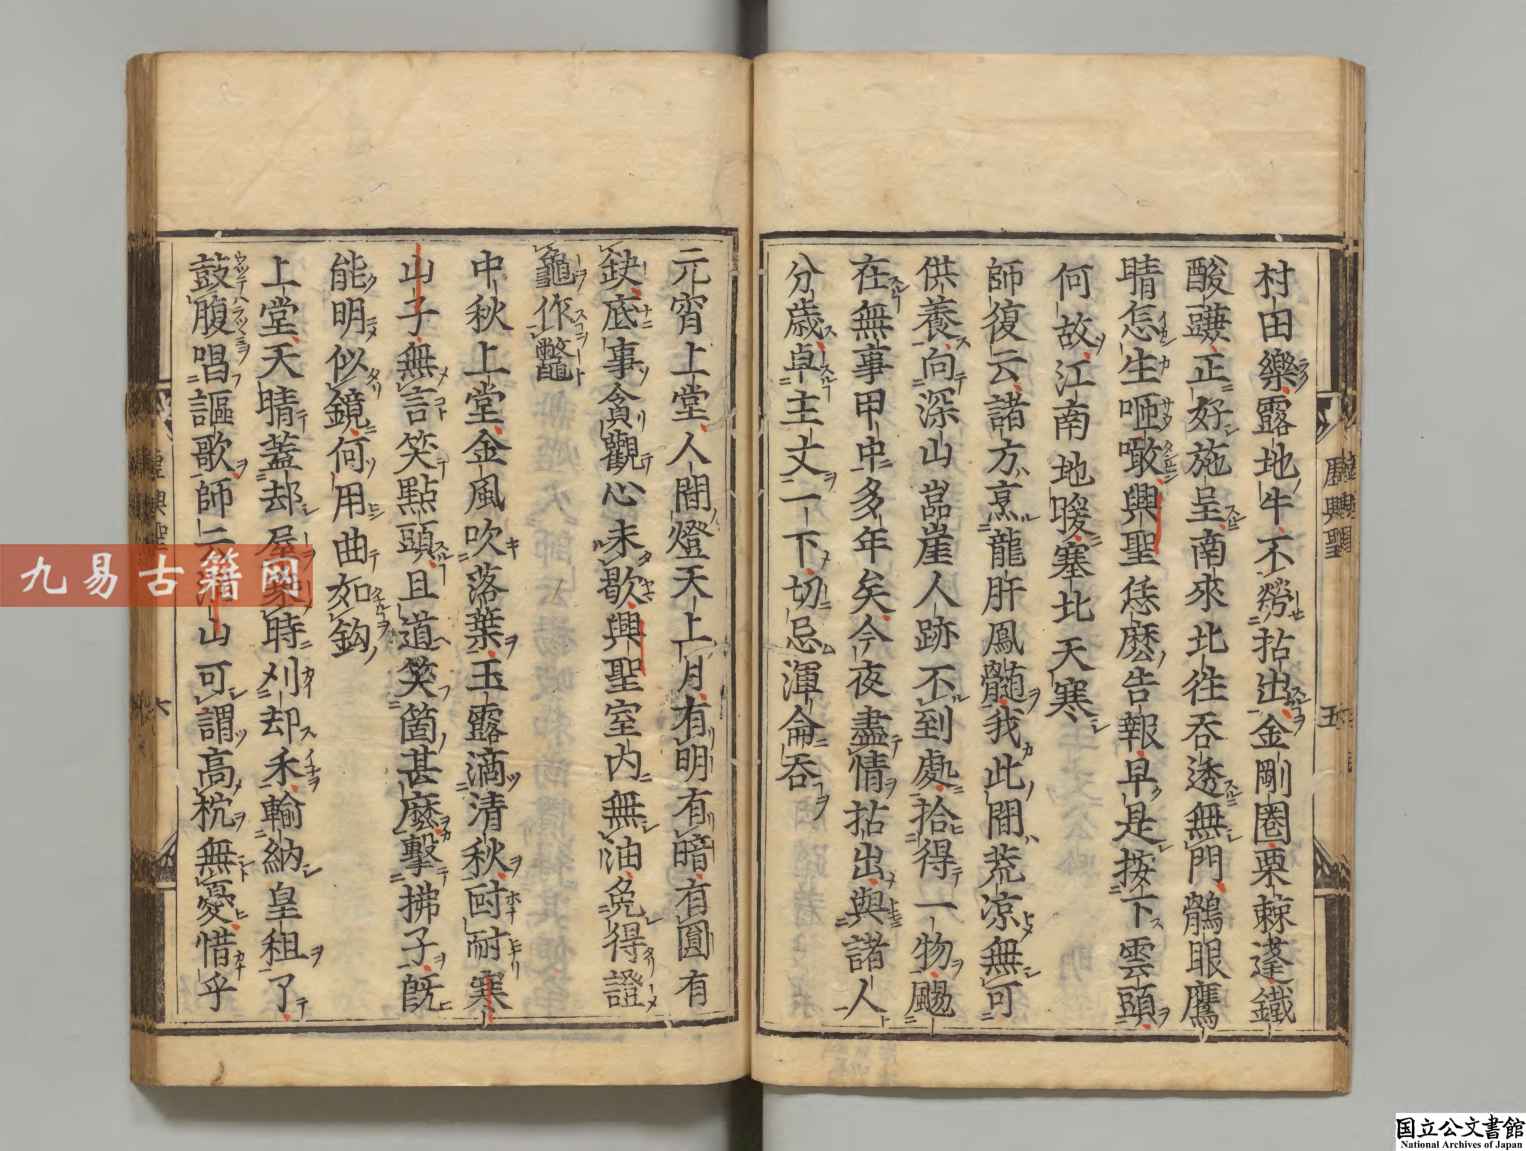 村田樂露地牛不勞拈出金剛圈栗棘蓬鐵
酸豏正好施呈南來北往吞透無門鶻眼鷹
睛怎生咂噉興聖恁麽告報早是按下雲頭
何故江南地暖塞北天寒
師復云諸方烹龍肝鳳髓我此間荒凉無可
供養向深山嵓崖人跡不到處拾得一物颺
在無事甲中多年矣今夜盡情拈出與諸人
分歳卓主丈一下切忌渾侖吞
虚興聖
五
元宵上堂人間燈天上月有明有暗有圓有
缺底事貪觀心未歇興聖室内無油免得證
龜作鼈
中秋上堂金風吹落葉玉露滴清秋耐寒
山子無言笑點頭且道笑箇甚麽擊拂子旣
能明似鏡何用曲如鈎
上堂天晴蓋却屋時刈却禾輸納皇租了
鼓腹唱謳歌師云山可謂高枕無憂惜乎
六
九易古籍网
国立公文書館
National Archives of Japan